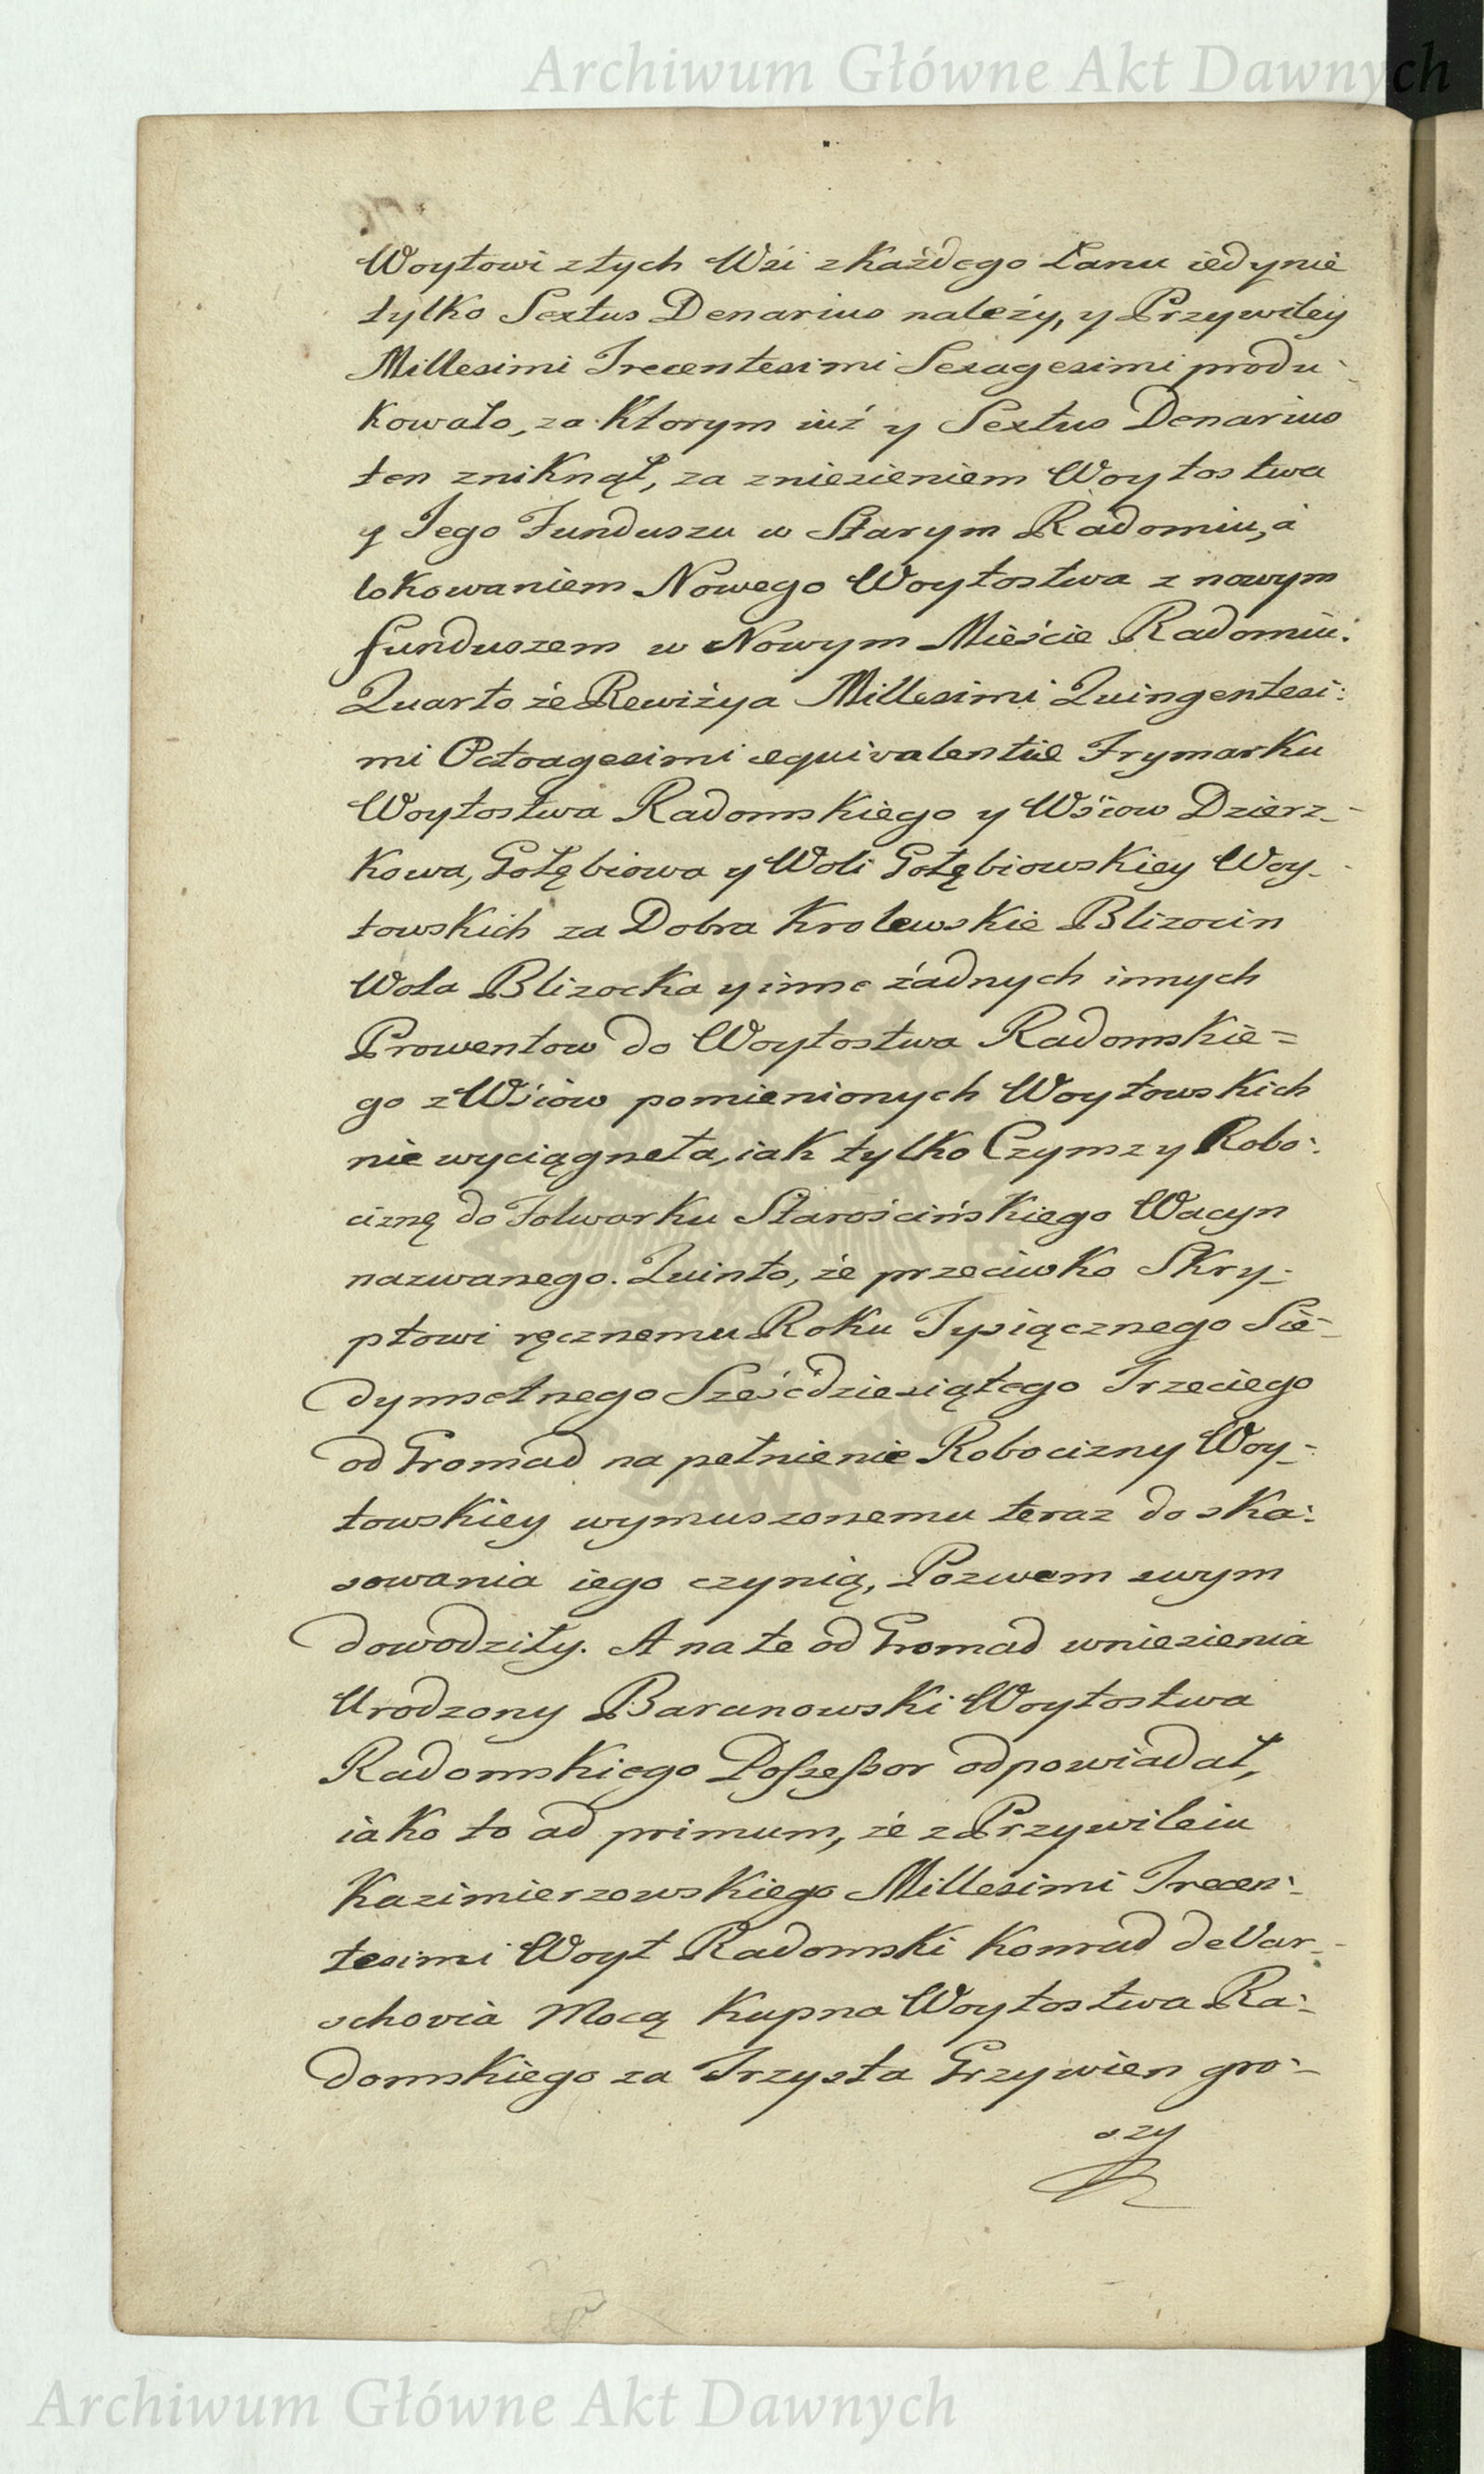 Archiwum Główne Akt Dawnych
Woytowi z tych Wśi z Każdego Łanu iedynie
tylko Sextus Denarius należy, y Przywiley
Millesimi Trecentesimi Sexagesimi produ:
kowało, za Ktorym iuż y Sextus Denarius
ten zniknął, za zniesieniem Woytostwa
y Jego Funduszu w Starym Radomiu, a
lokowaniem Nowego Woytostwa z nowym
funduszem w Nowym Mieście Radomiu.
Quarto że Rewizya Millesimi Quingentesi:
mi Octoagesimi equivalentie Frymarku
Woytostwa Radomskiego y Wśiow Dzierz-
kowa, Gołębiowa y Woli Gołębiowskiey Woy-
towskich za Dobra Krolewskie Blizocin
Wola Blizocka y inne żadnych innych
Prowentow do Woytostwa Radomskie=
go z Wśiow pomienionych Woytowskich
nie wyciągneła, iak tylko Czynsz y Robo:
ciznę do Folwarku Starościńskiego Wacyn
nazwanego. Quinto, że przeciwko Skry-
ptowi ręcznemu Roku Tysiącznego Sie-
dymsetnego Sześćdziesiątego Trzeciego
od Gromad na pełnienie Robocizny Woy-
towskiey wymuszonemu teraz do ska:
sowania iego czynią, Pozwem swym
dowodziły. A na te od Gromad wniesienia
Urodzony Baranowski Woytostwa
Radomskiego Possessor odpowiadał,
iako to ad primum, że z Przywileiu
Kazimierzowskiego Millesimi Trecen:
tesimi Woyt Radomski Konrad de Var-
schovia Mocą Kupna Woytostwa Ra:
domskiego za Trzysta Grzywien gro-
szy
Archiwum Główne Akt Dawnych